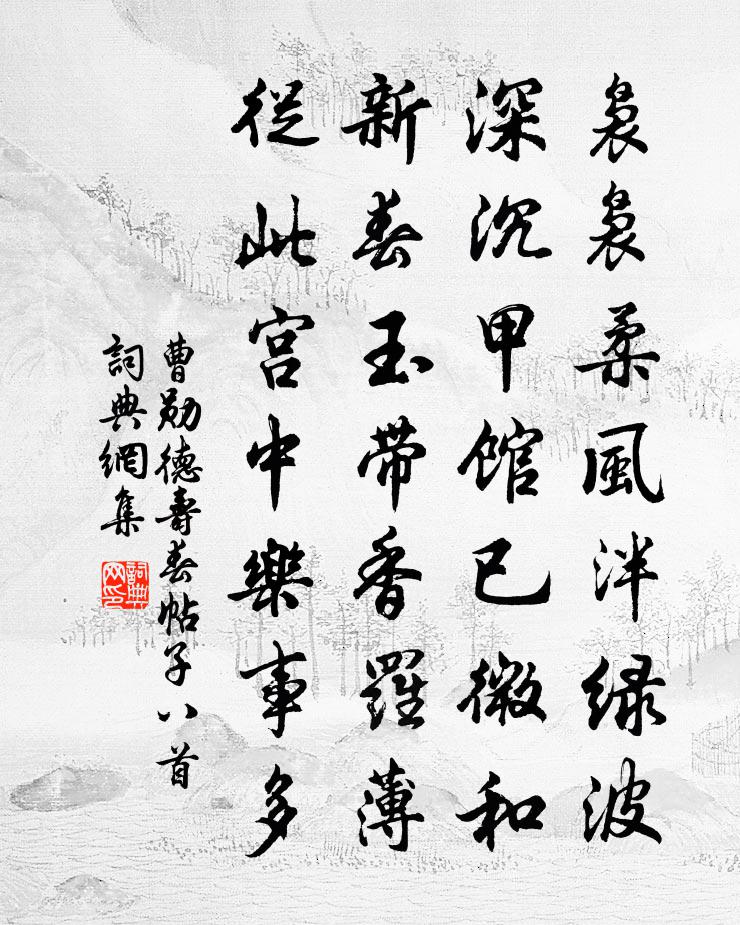 裊裊柔風泮绿波
深沉甲館已微和
新春玉帶香羅薄
從此宫中樂事多
曹勛德壽春帖子八首
詞典網集
詞典网印